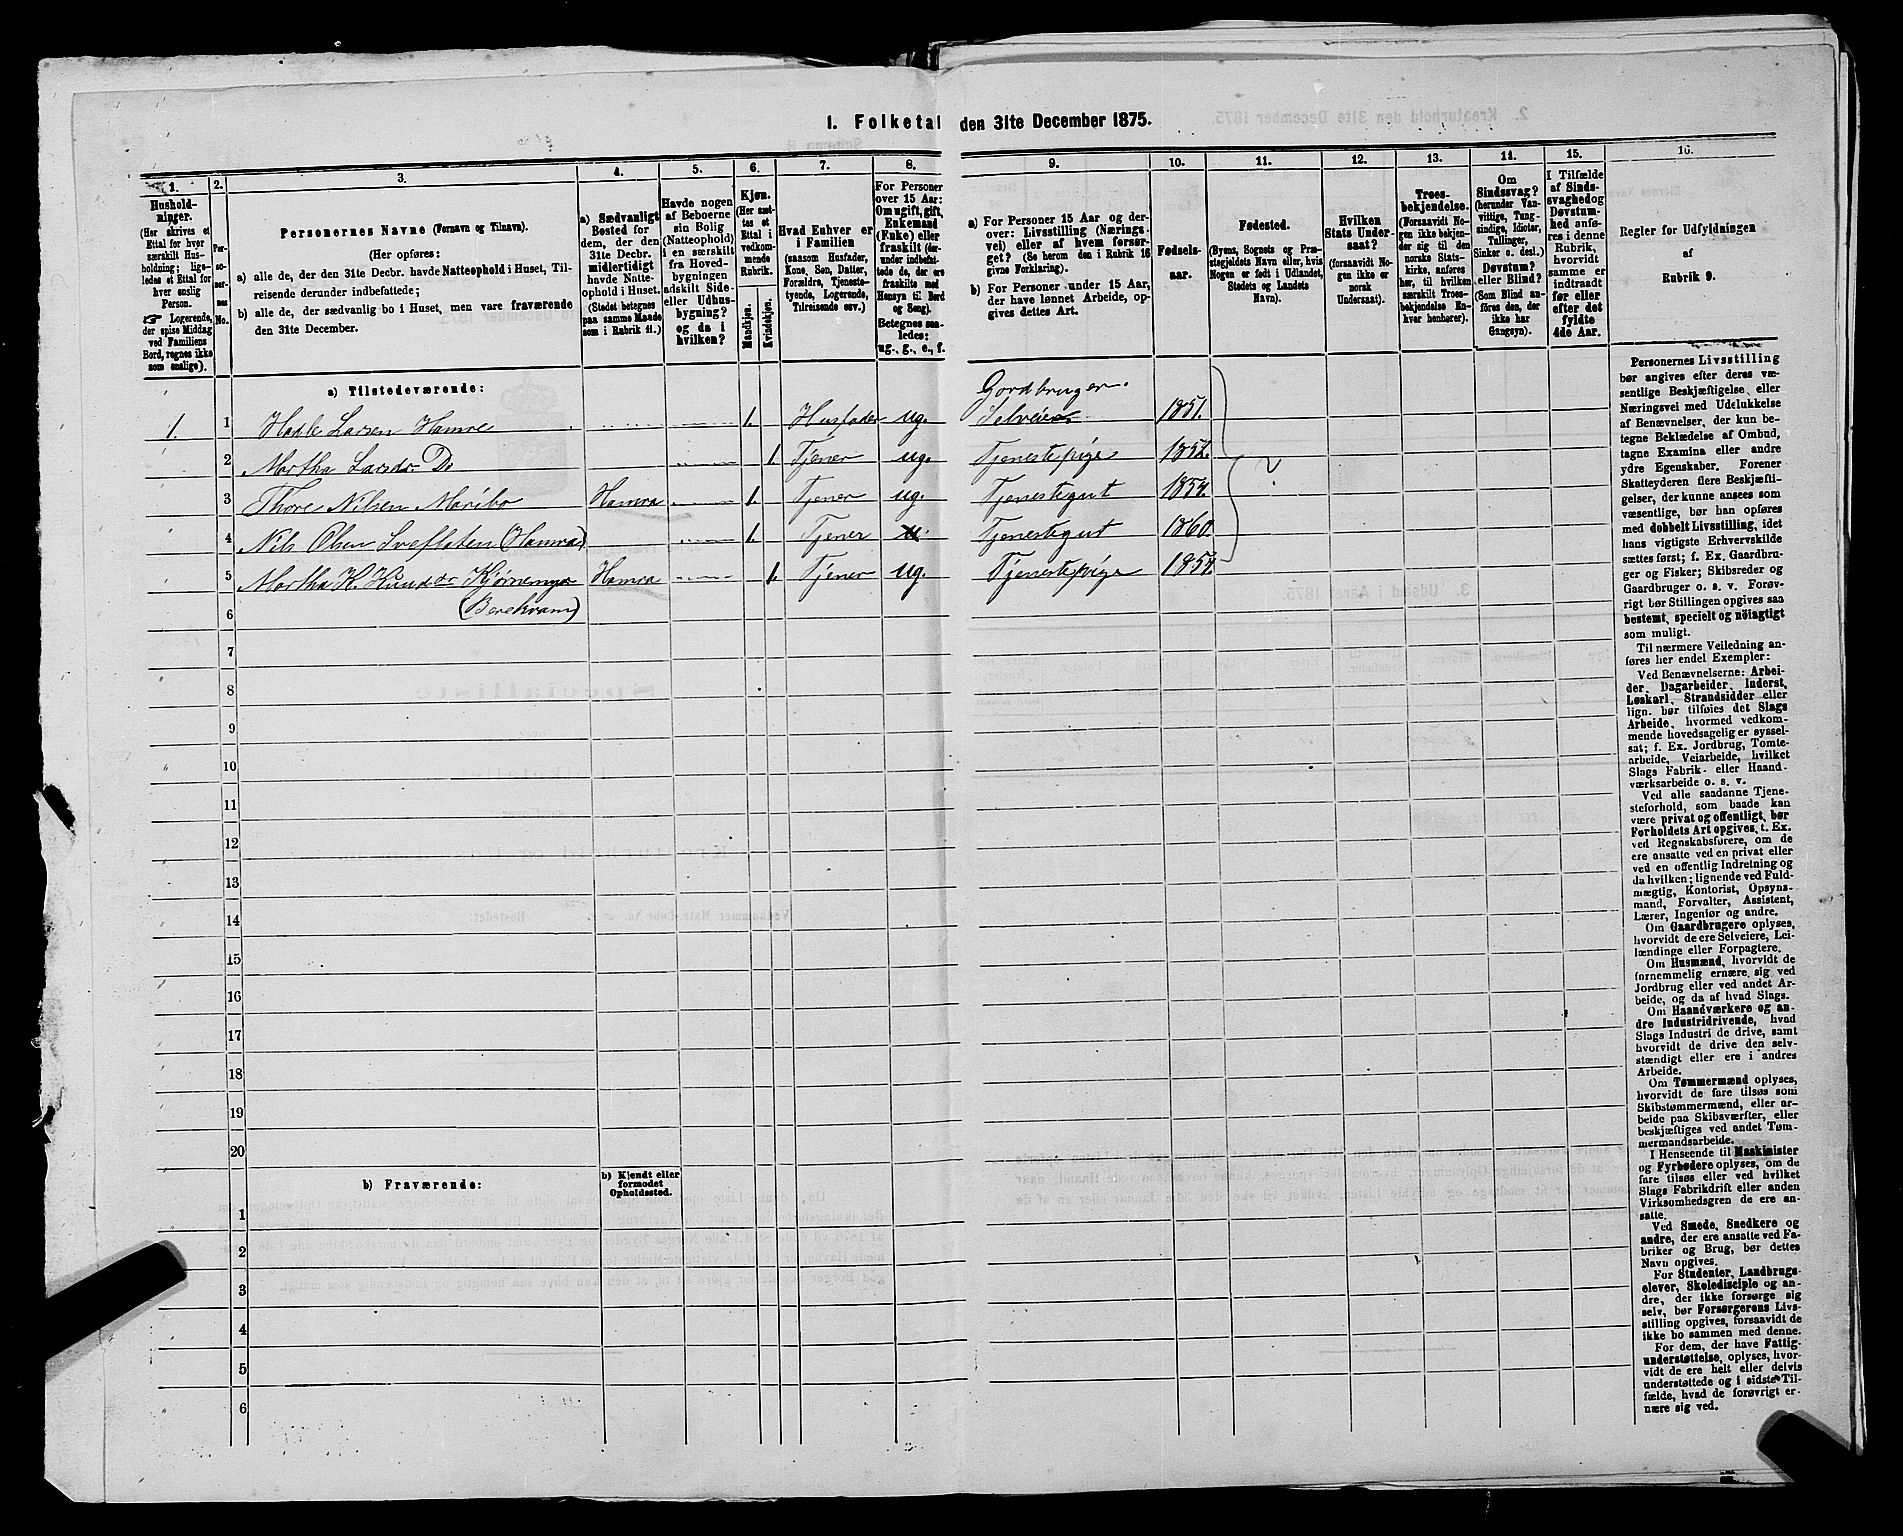 1. Folketal den 31te December 1875.
1.
Hushold-
ninger.
(Her skrives et
Ettal for hver
særskilt Hus-
holdning; lige-
ledes et Ettal for
hver enslig
Person.
Logerende,
der spise Middag
ved Familiens
Bord, regnes ikke
som enslige).
2.
Per-
so-
ner-
nes
No.
3.
Personernes Navne (Fornavn og Tilnavn).
(Her opføres:
a) alle de, der den 31te Decbr. havde Natteophold i Huset, Til-
reisende derunder indbefattede;
b) alle de, der sædvanlig bo i Huset, men vare fraværende
den 31te December.
4.
a) Sædvanligt
Bosted for
dem, der den
31te Decbr.
midlertidigt
havde Natte-
ophold i Huset.
(Stedet betegnes
paa samme Maade
som i Rubrik 11.)
5.
Havde nogen
af Beboerne
sin Bolig
(Natteophold)
i en særskilt
fra Hoved-
bygningen
adskilt Side-
eller Udhus-
bygning?
og da i
hvilken?
6.
Kjøn.
(Her sæt-
tes et
Ettal i
vedkom-
mende
Rubrik.
Mandkjøn.
Kvindekjøn.
7.
Hvad Enhver er
i Familien
(saasom Husfader,
Kone, Søn, Datter,
Forældre, Tjeneste-
tyende, Logerende,
Tilreisende osv.).
8.
For Personer
over 15 Aar:
Om ugift, gift,
Enkemand
(Enke) eller
fraskilt (der-
under indbefat-
tede de, der ere
fraskilte med
Hensyn til Bord
og Seng).
Betegnes saa-
ledes:
ug., g., e., f.
9.
a) For Personer 15 Aar og der-
over: Livsstilling (Nærings-
vei) eller af hvem forsør-
get? (Se herom den i Rubrik 16
givne Forklaring).
b) For Personer under 15 Aar,
der have lønnet Arbeide, op-
gives dettes Art.
10.
Fødsels-
aar.
11.
Fødested.
(Byens, Sognets og Præ-
stegjeldets Navn eller, hvis
Nogen er født i Udlandet,
Stedets og Landets
Navn).
12.
Hvilken
Stats Under-
saat?
(forsaavidt No-
gen ikke er
norsk
Undersaat).
13.
Troes-
bekjendelse.
(Forsaavidt No-
gen ikke bekjen-
der sig til den
norske Stats-
kirke, anføres
her, til hvilken
særskilt Troes-
bekjendelse En-
hver henhører).
14.
Om
Sindssvag?
(herunder Van-
vittige, Tung-
sindige, Idioter,
Tullinger,
Sinker o. desl.)
Døvstum?
eller Blind?
(Som Blind an-
føres den, der
ikke har
Gangsyn).
15.
I Tilfælde
af Sinds-
svaghed og
Døvstum-
hed anfø-
res i denne
Rubrik,
hvorvidt
samme er
indtraadt
før eller
efter det
fyldte
4de Aar.
16.
Regler for Udfyldningen
af
Rubrik 9.
a) Tilstedeværende:
Gordbruger.
1. 1 Hadle Larsen Hamre 1. Husfader ug. Selveier 1851.
2 Martha Larsdr Do 1. Tjener ug. Tjenestepige 1852.
?
3 Thore Nilsen Maribo Hamra 1. Tjener ug. Tjenestegut 1854.
4 Nils Olsen Svefloten (Hamra) 1. Tjener Tjenestegut 1860.
5 Martha K. Knudsdr Kjørnemyr Hamra 1. Tjener ug. Tjenestepige 1854.
6 (Berekvam)
7
8
9
10
11
12
13
14
15
16
17
18
19
20
b) Fraværende:
b) Kjendt eller
formodet
Opholdssted.
1
2
3
4
5
6
Personernes Livsstilling
bør angives efter deres væ-
sentlige Beskjæftigelse eller
Næringsvei med Udelukkelse
af Benævnelser, der kun be-
tegne Beklædelse af Ombud,
tagne Examina eller andre
ydre Egenskaber. Forener
Skatteyderen flere Beskjæfti-
gelser, der kunne ansees som
væsentlige, bør han opføres
med dobbelt Livsstilling, idet
hans vigtigste Erhvervskilde
sættes først; f. Ex. Gaardbru-
ger og Fisker; Skibsreder og
Gaardbruger o. s. v. Forøv-
rigt bør Stillingen opgives saa
bestemt, specielt og nøiagtigt
som muligt.
Til nærmere Veiledning an-
føres her endel Exempler:
Ved Benævnelserne: Arbei-
der, Dagarbeider, Inderst,
Løskarl, Strandsidder eller
lign. bør tilføies det Slags
Arbeide, hvormed vedkom-
mende hovedsagelig er syssel-
sat; f. Ex. Jordbrug, Tomte-
arbeide, Veiarbeide, hvilket
Slags Fabrik- eller Haand-
værksarbeide o. s. v.
Ved alle saadanne Tjene-
steforhold, som baade kan
være privat og offentligt, bør
Forholdets Art opgives, t. Ex.
ved Regnskabsførere, om de
ere ansatte ved en privat eller
ved en offentlig Indretning og
da hvilken; lignende ved Fuld-
mægtig, Kontorist, Opsyns-
mand, Forvalter, Assistent,
Lærer, Ingeniør og andre.
Om Gaardbrugere oplyses,
hvorvidt de ere Selveiere, Lei-
lændinge eller Forpagtere.
Om Husmænd, hvorvidt de
fornemmelig ernære sig ved
Jordbrug eller ved andet Ar-
beide, og da af hvad Slags.
Om Haandværkere og an-
dre Industridrivende, hvad
Slags Industri de drive, samt
hvorvidt de drive den selv-
stændigt eller ere i andres
Arbeide.
Om Tømmermænd oplyses,
hvorvidt de fare tilsøs som
Skibstømmermænd, eller ar-
beide paa Skibsværfter, eller
beskjæftiges ved andet Tøm-
mermandsarbeide.
I Henseende til Maskinister
og Fyrbødere oplyses, om de
fare tilsøs eller ved hvilket
Slags Fabrikdrift eller anden
Virksomhedsgren de ere an-
satte.
Ved Smede, Snedkere og
andre, der ere ansatte ved Fa-
briker og Brug, bør dettes
Navn opgives.
For Studenter, Landbrugs-
elever, Skoledisciple og an-
dre, der ikke forsørge sig
selv, bør Forsørgerens Livs-
stilling opgives, forsaavidt de
ikke bo sammen med denne.
For dem, der have Fattig-
understøttelse, oplyses, hvor-
vidt de ere helt eller delvis
understøttede og i sidste Til-
fælde, hvad de forøvrigt er-
nære sig ved.